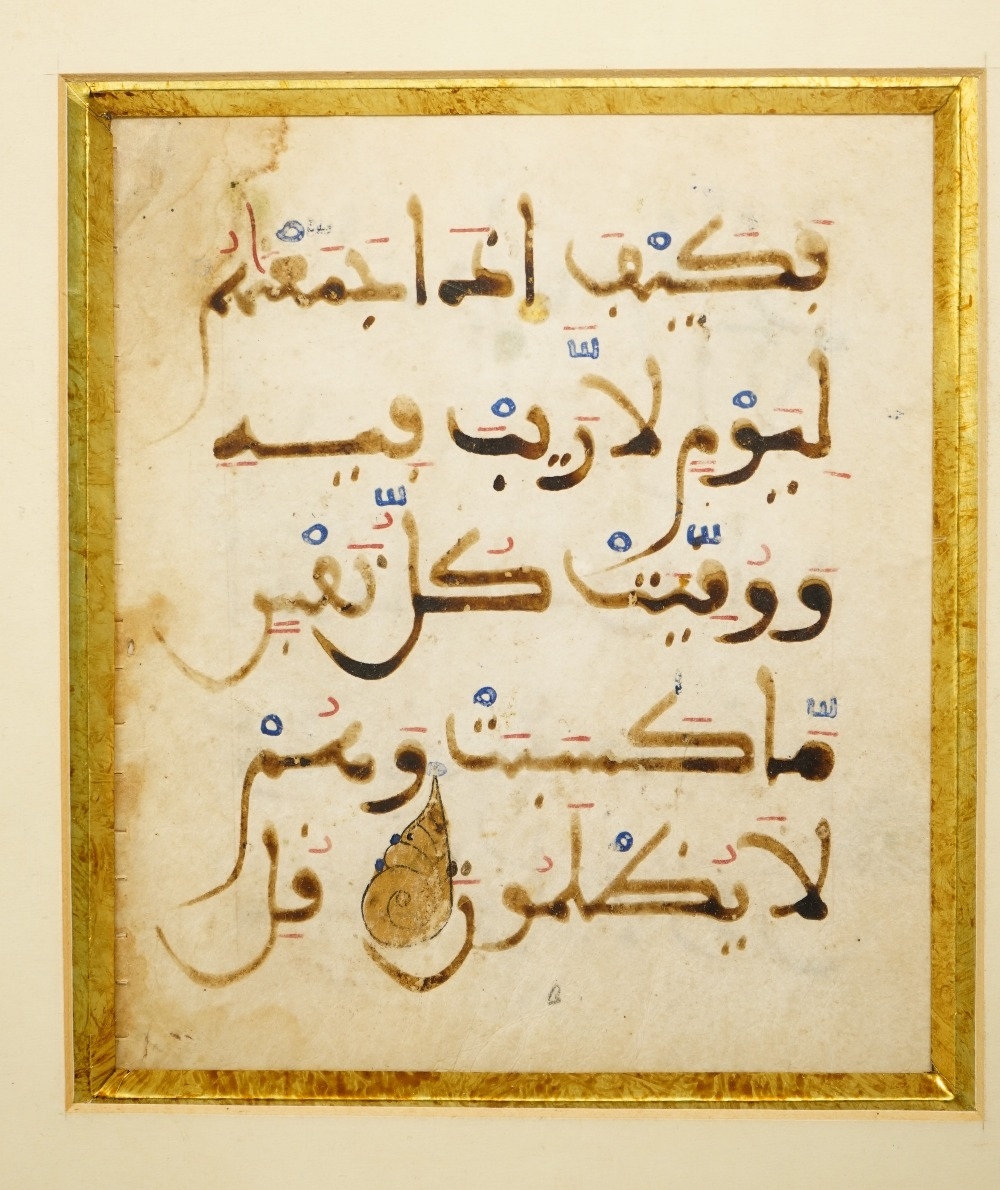 فَكَيْفَ إِذَا جَمَعْنَٰهُمْ
لِيَوْمٍ لَّا رَيْبَ فِيهِ
وَوُفِّيَتْ كُلُّ نَفْسٍ
مَّا كَسَبَتْ وَهُمْ
لَا يُظْلَمُونَ قُلِ